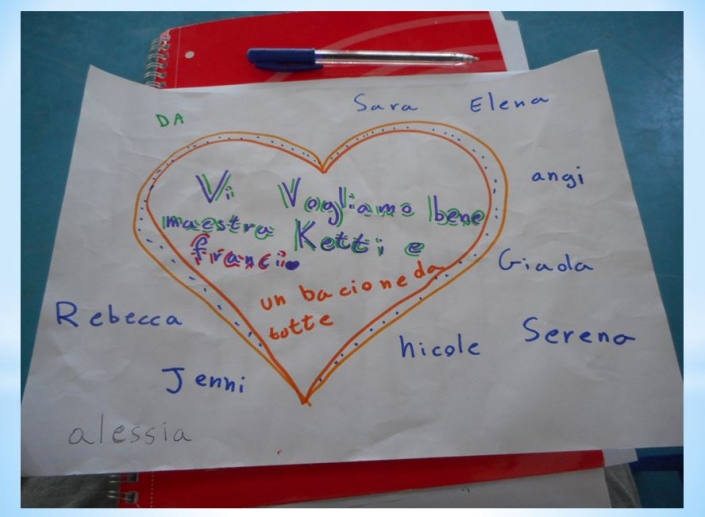 DA
Sara
Elena
angi
Vi Vogliamo bene
maestra Ketti e
franci.
un bacione da
tutte
Giada
Serena
Nicole
Rebecca
Jenni
alessia